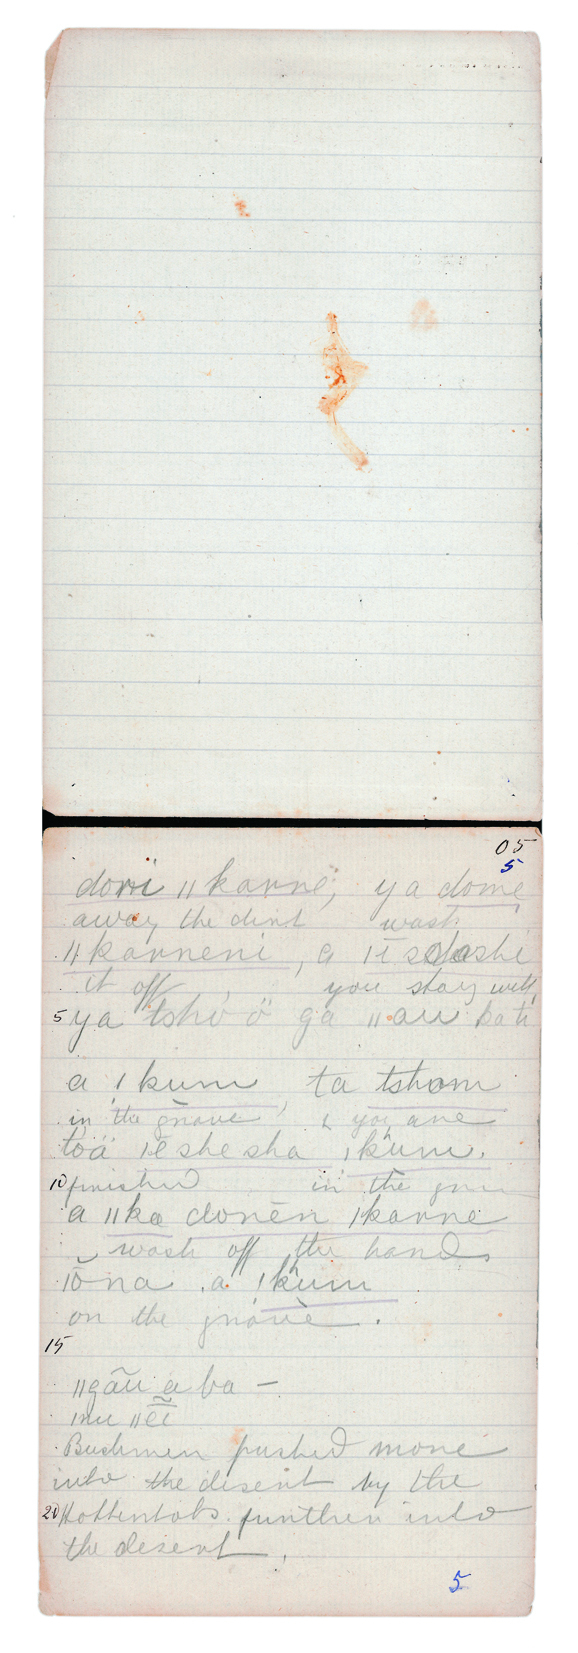 05
5
dorri ǁkarne, ya dome
away the dirt wash
ǁkarneni, a
it off, you stay well
5 ya tsho ö ga ǁau
a ǀkum ta tshom
in the grave, & you are
töä ǀe she sha ǀkum.
10 finished in the
a ǁka doren ǀkarne
wash off the hands
ǀona a ǀkum
on the grave.
15
ǁgãũ a ba —
Bushmen pushed more
into the desert by the
20 Hottentots further into
the desert.
5